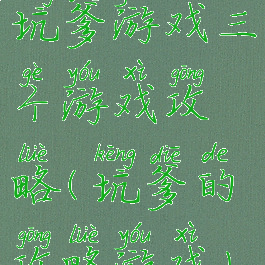 坑爹游戏三
gè yóu xì gōng
个游戏攻
lüè kēng diē de
略(坑爹的
gōng lüè yóu xì
攻略游戏)